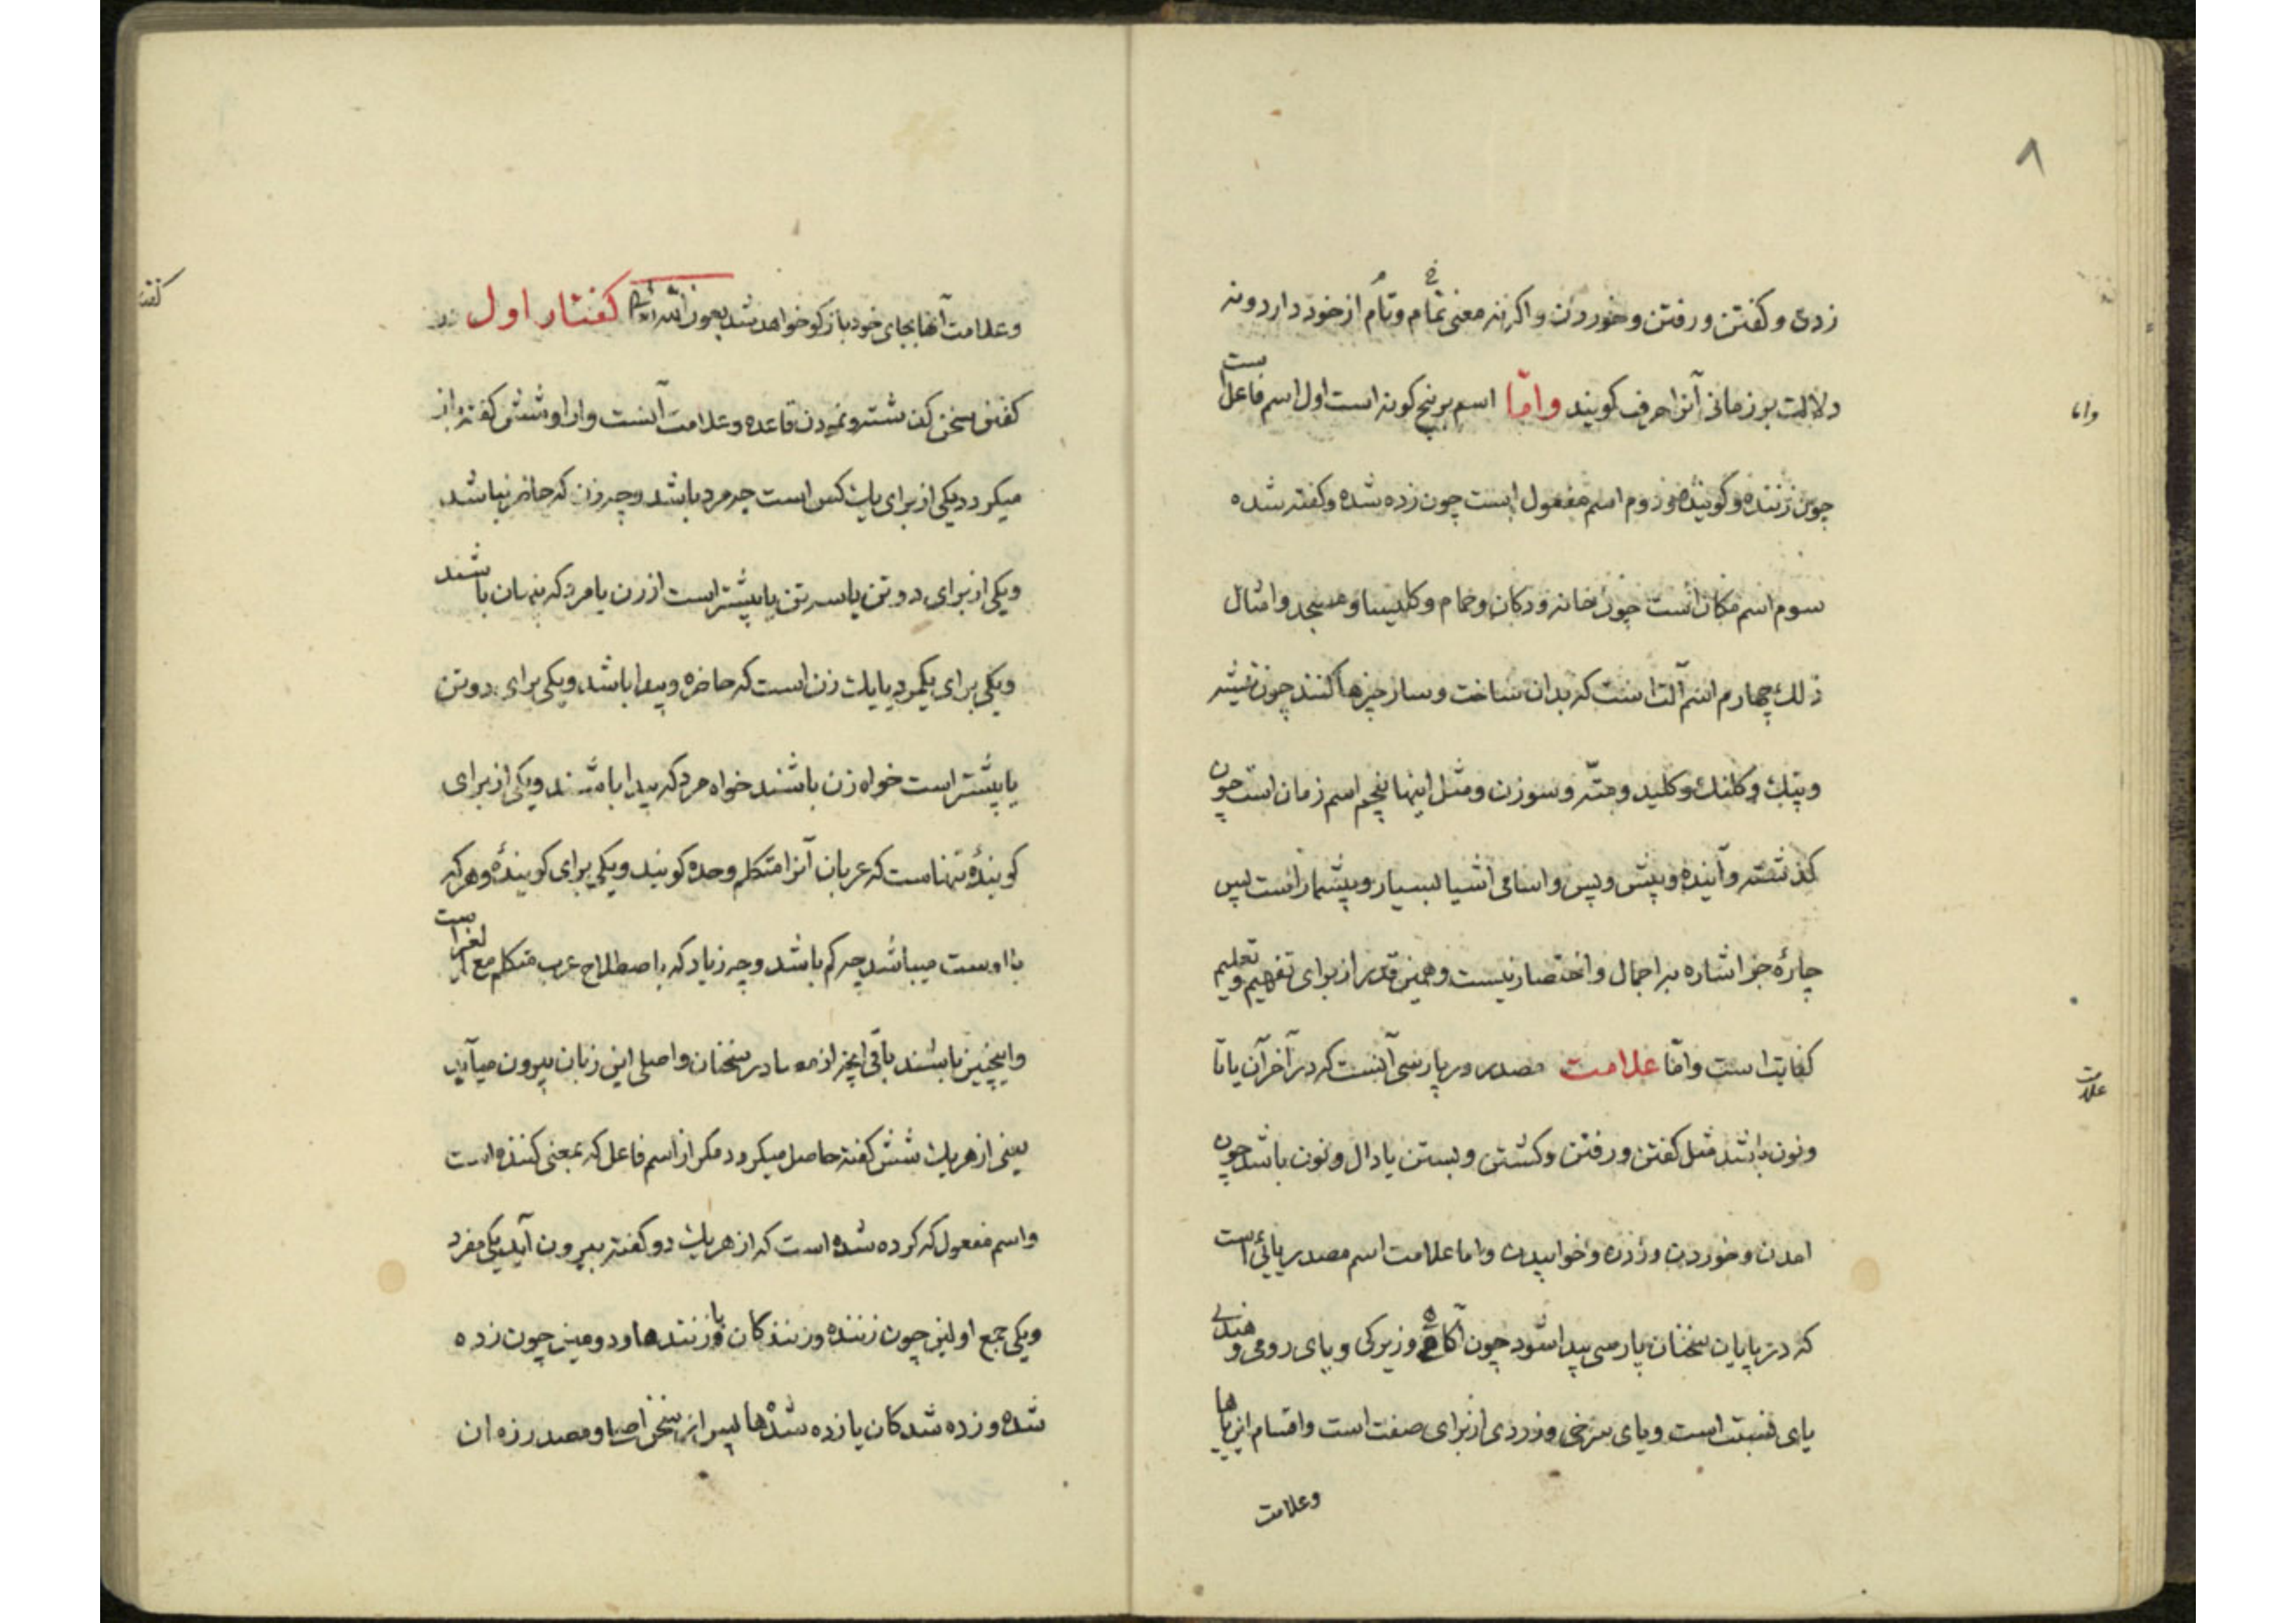 ۸
زدن و کفتن و رفتن و خوردن و اکر نه معنی تمام و تام از خود دارد و نه
دلالت بر زمانی آنرا حرف کویند وامّا اسم بر پنج کونه است اول اسم فاعل است
چون زننده و کوینده و دوم اسم مفعول است چون زده شده و کفته شده
سوم اسم مکان است چون خانه و دکان و حمام و کلیسا و مسجد و امثال
ذلك چهارم اسم آلت است که بدان ساخت و ساز چیزها کنند چون تیشه
و پتك و کلنك و کلید و متّه و سوزن و مثل اینها پنجم اسم زمان است چون
کذشته و آینده و پیش و پس و اسامی اشیا بسیار و بیشمار است پس
چارهٔ جز اشاره بر اجمال و اختصار نیست و همین قدر از برای تفهیم و تعلیم
کفایت است وامّا علامت مصدر در پارسی آنست که در آخر آن یا تا
و نون باشد مثل کفتن و رفتن و کشتن و بستن یا دال و نون باشد چون
امدن و خوردن و زدن و خوابیدن و اما علامت اسم مصدر یائی است
که در پایان سخنان پارسی پیدا شود چون و زیرکی و یای رومی و هندی
یای نسبت است و یای سرخی و زردی از برای صفت است و اقسام این یاها
وعلامت
وامّا
علامت
وعلامت آنها بجای خود بازکو خواهد شد بعون الله کفتار اول در
کفتن سخن کذشته و نمودن قاعده و علامت آنست و از او شش کفته باز
میکردد یکی از برای یك کس است چه مرد باشد و چه زن که حاضر نباشد
و یکی از برای دو تن یا سه تن یا بیشتر است از زن یا مرد که پنهان باشند
و یکی برای یکمرد یا یك زن است که حاضر و پیدا باشد و یکی برای دو تن
یا بیشتر است خواه زن باشند خواه مرد که پیدا باشند و یکی از برای
کویندهٔ تنها است که عربان آنرا متکلم وحده کویند و یکی برای کوینده و هر که
با اوست میباشد چه کم باشد و چه زیاد که باصطلاح عرب متکلم مع الغیر است
و اینچنین باشند باقی انچه از مصادر سخنان و اصلی این زبان بیرون میآید
یعنی از هر یك شش کفته حاصل میکردد مکر از اسم فاعل که بمعنی کننده است
و اسم مفعول که کرده شده است که از هر یك دو کفته بیرون آید یکی مفرد
و یکی جمع اولین چون زننده و زنندکان و یا زنندها و دومین چون زده
شده و زده شدکان یا زده شدها پس از سخن اصل و مصدر زدن
کفتار